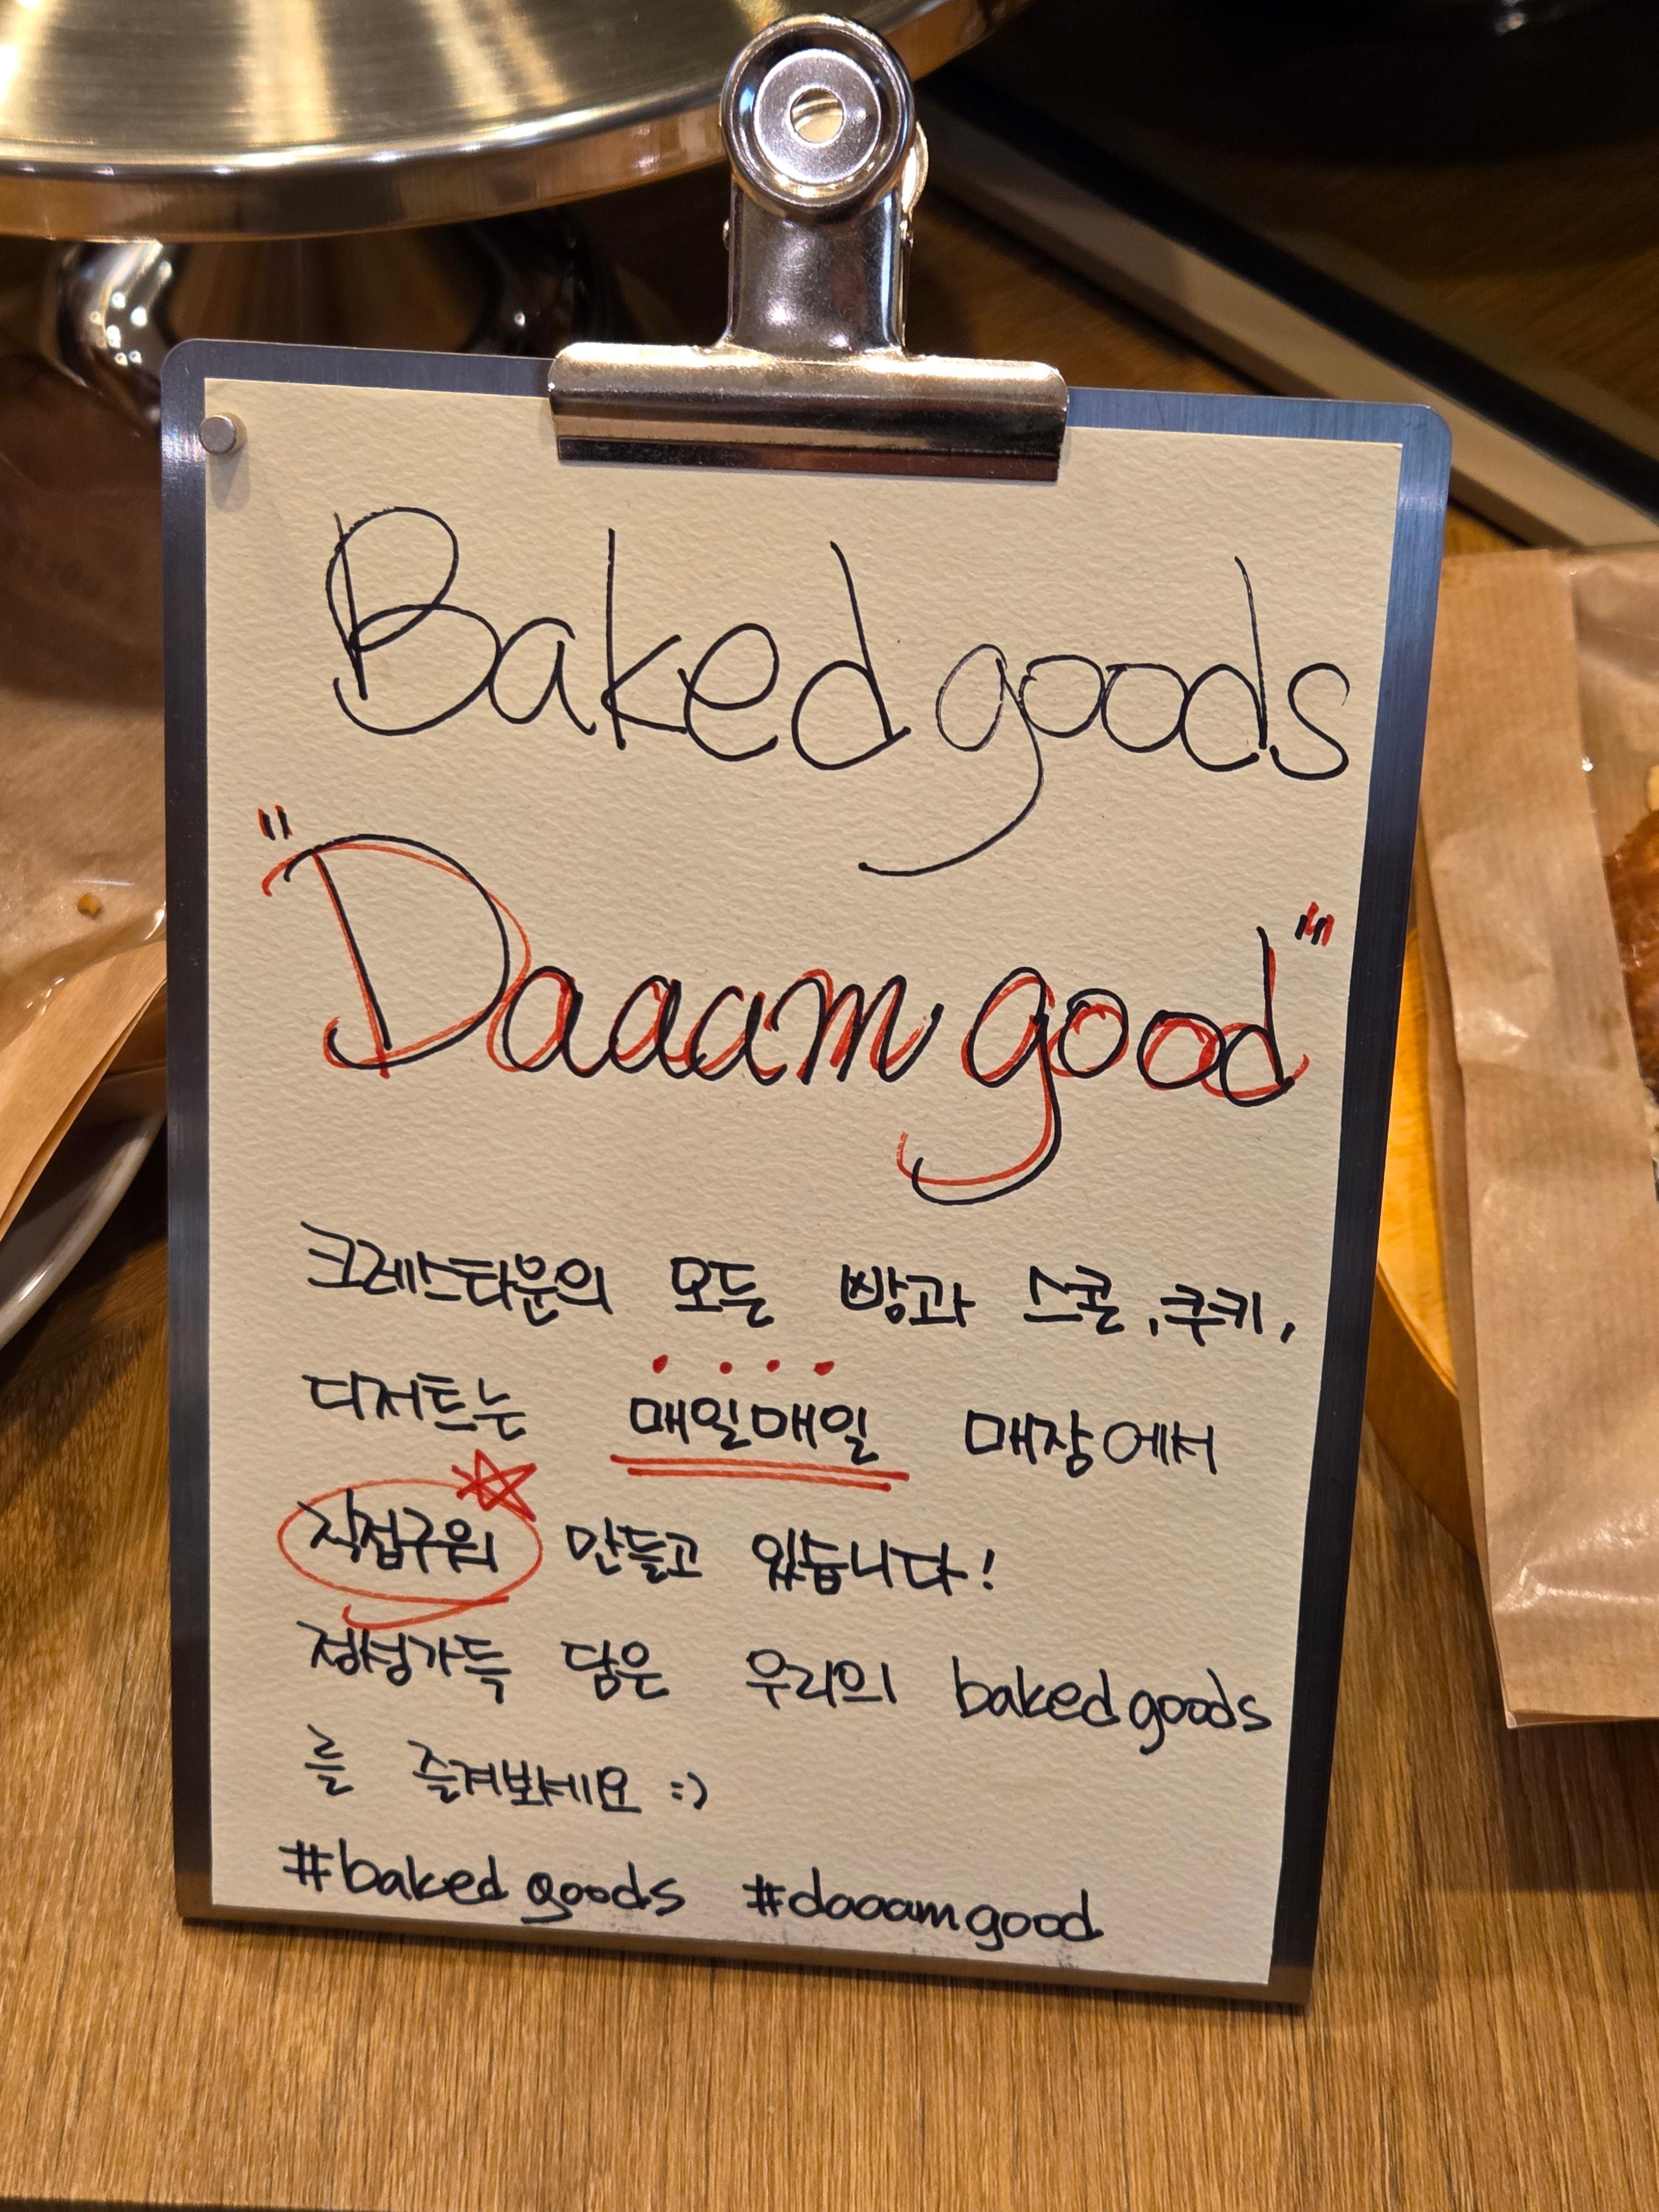 Baked goods
"Daaam good"
크레스타운의 모든 빵과 스콘, 쿠키,
디저트는 매일매일 매장에서
직접구워 만들고 있습니다!
정성가득 담은 우리의 baked goods
를 즐겨보세요 :)
#baked goods #daaam good